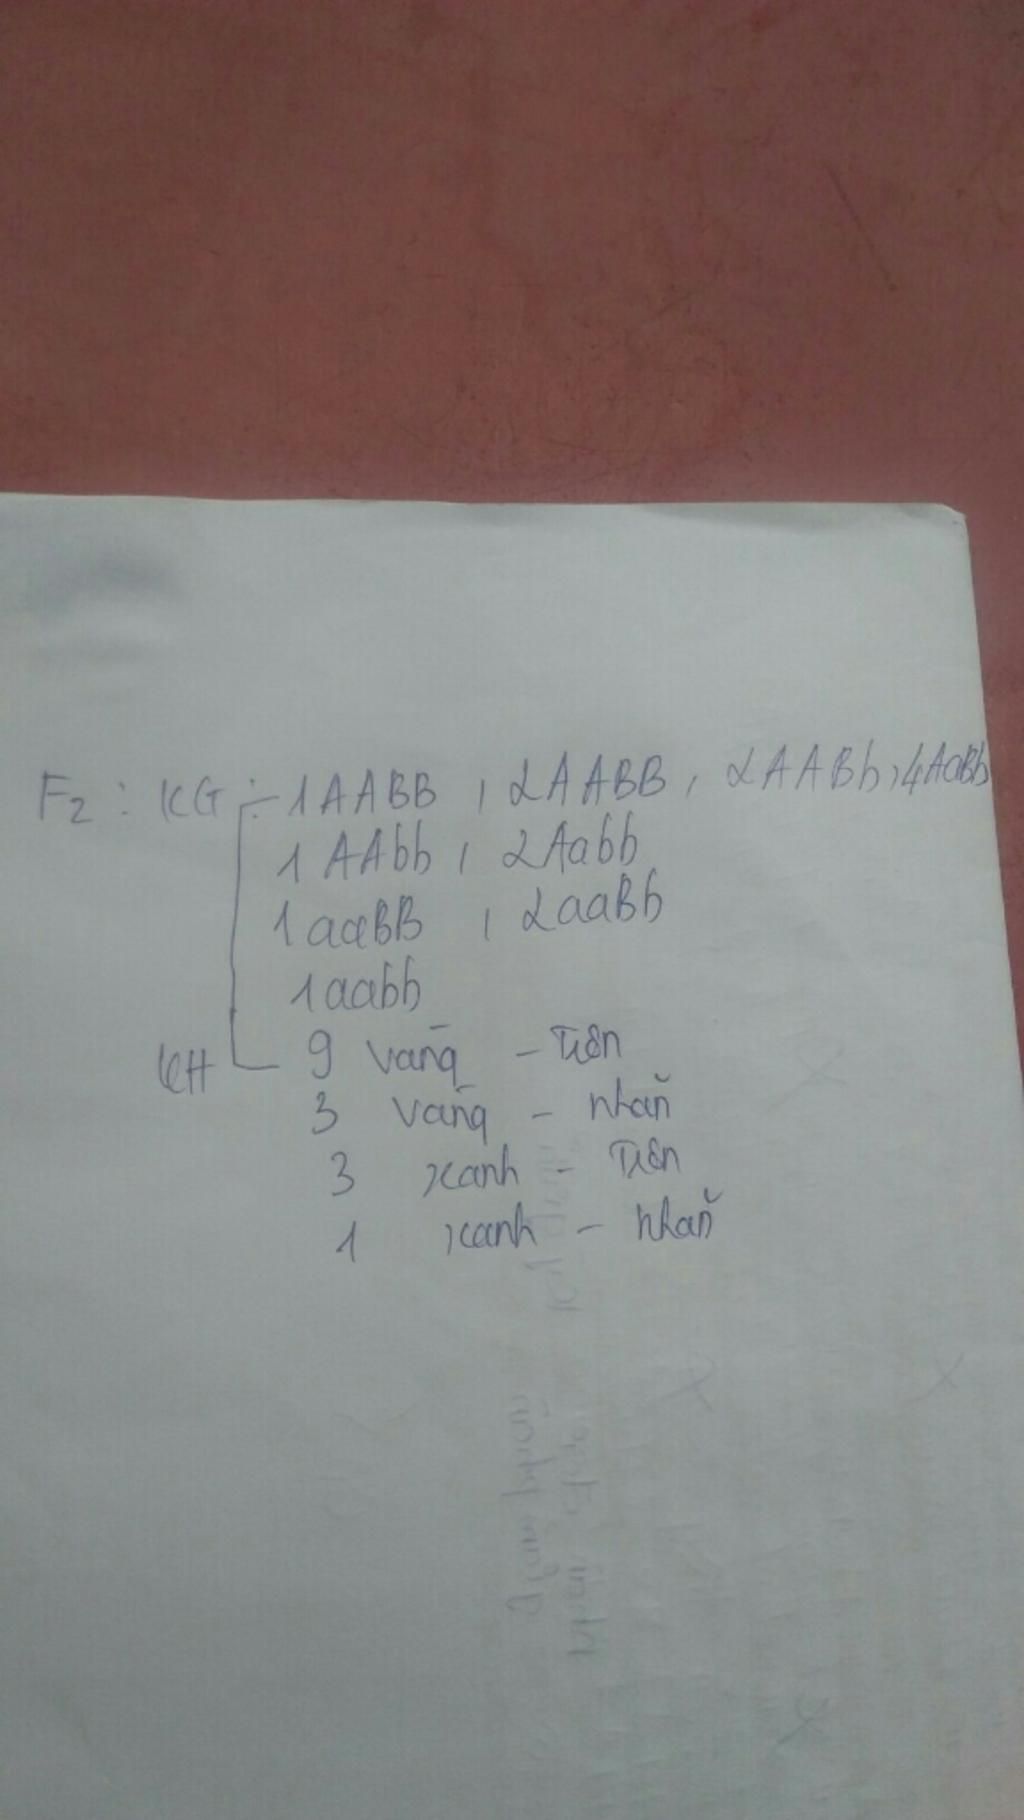 F2 : KG : 1AABB , 2AABB , 2AABb, 4AaBb
1AAbb , 2Aabb
1aaBB , 2aaBb
1aabb
KH 9 vàng - Trơn
3 vàng - nhăn
3 xanh - Trơn
1 xanh - nhăn